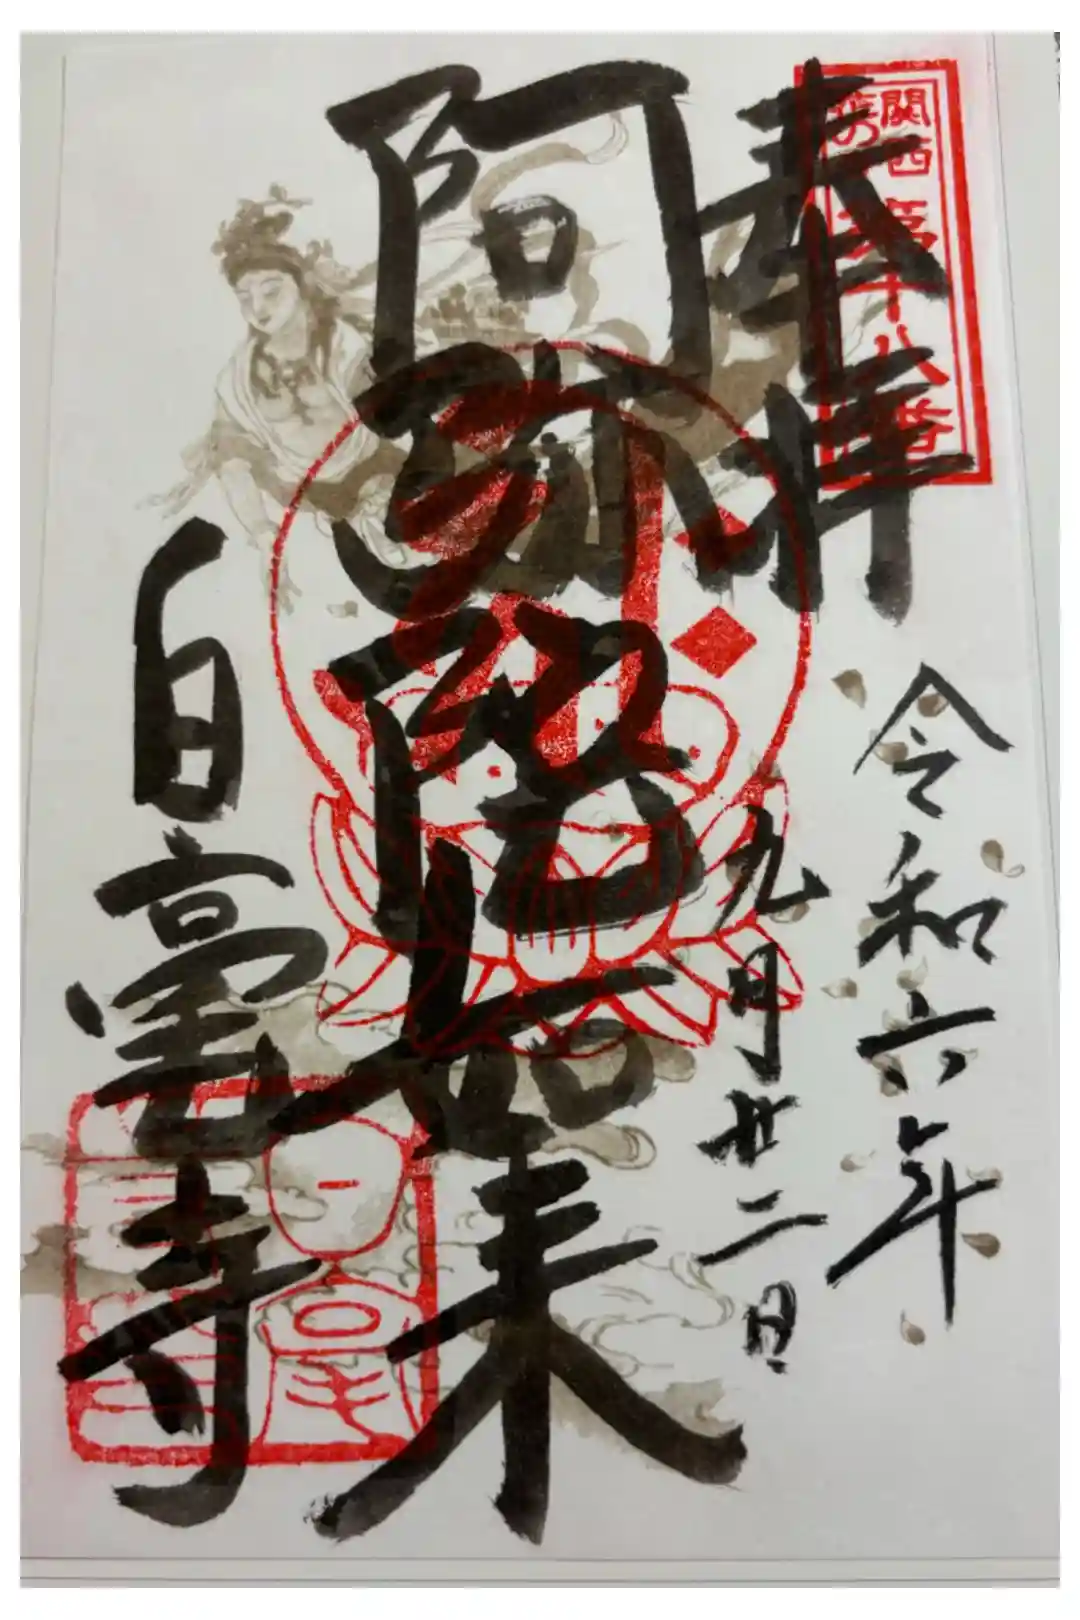 奉拝
関西
花の寺
第十八番
令和六年
九月廿二日
阿弥陀如来
白毫寺